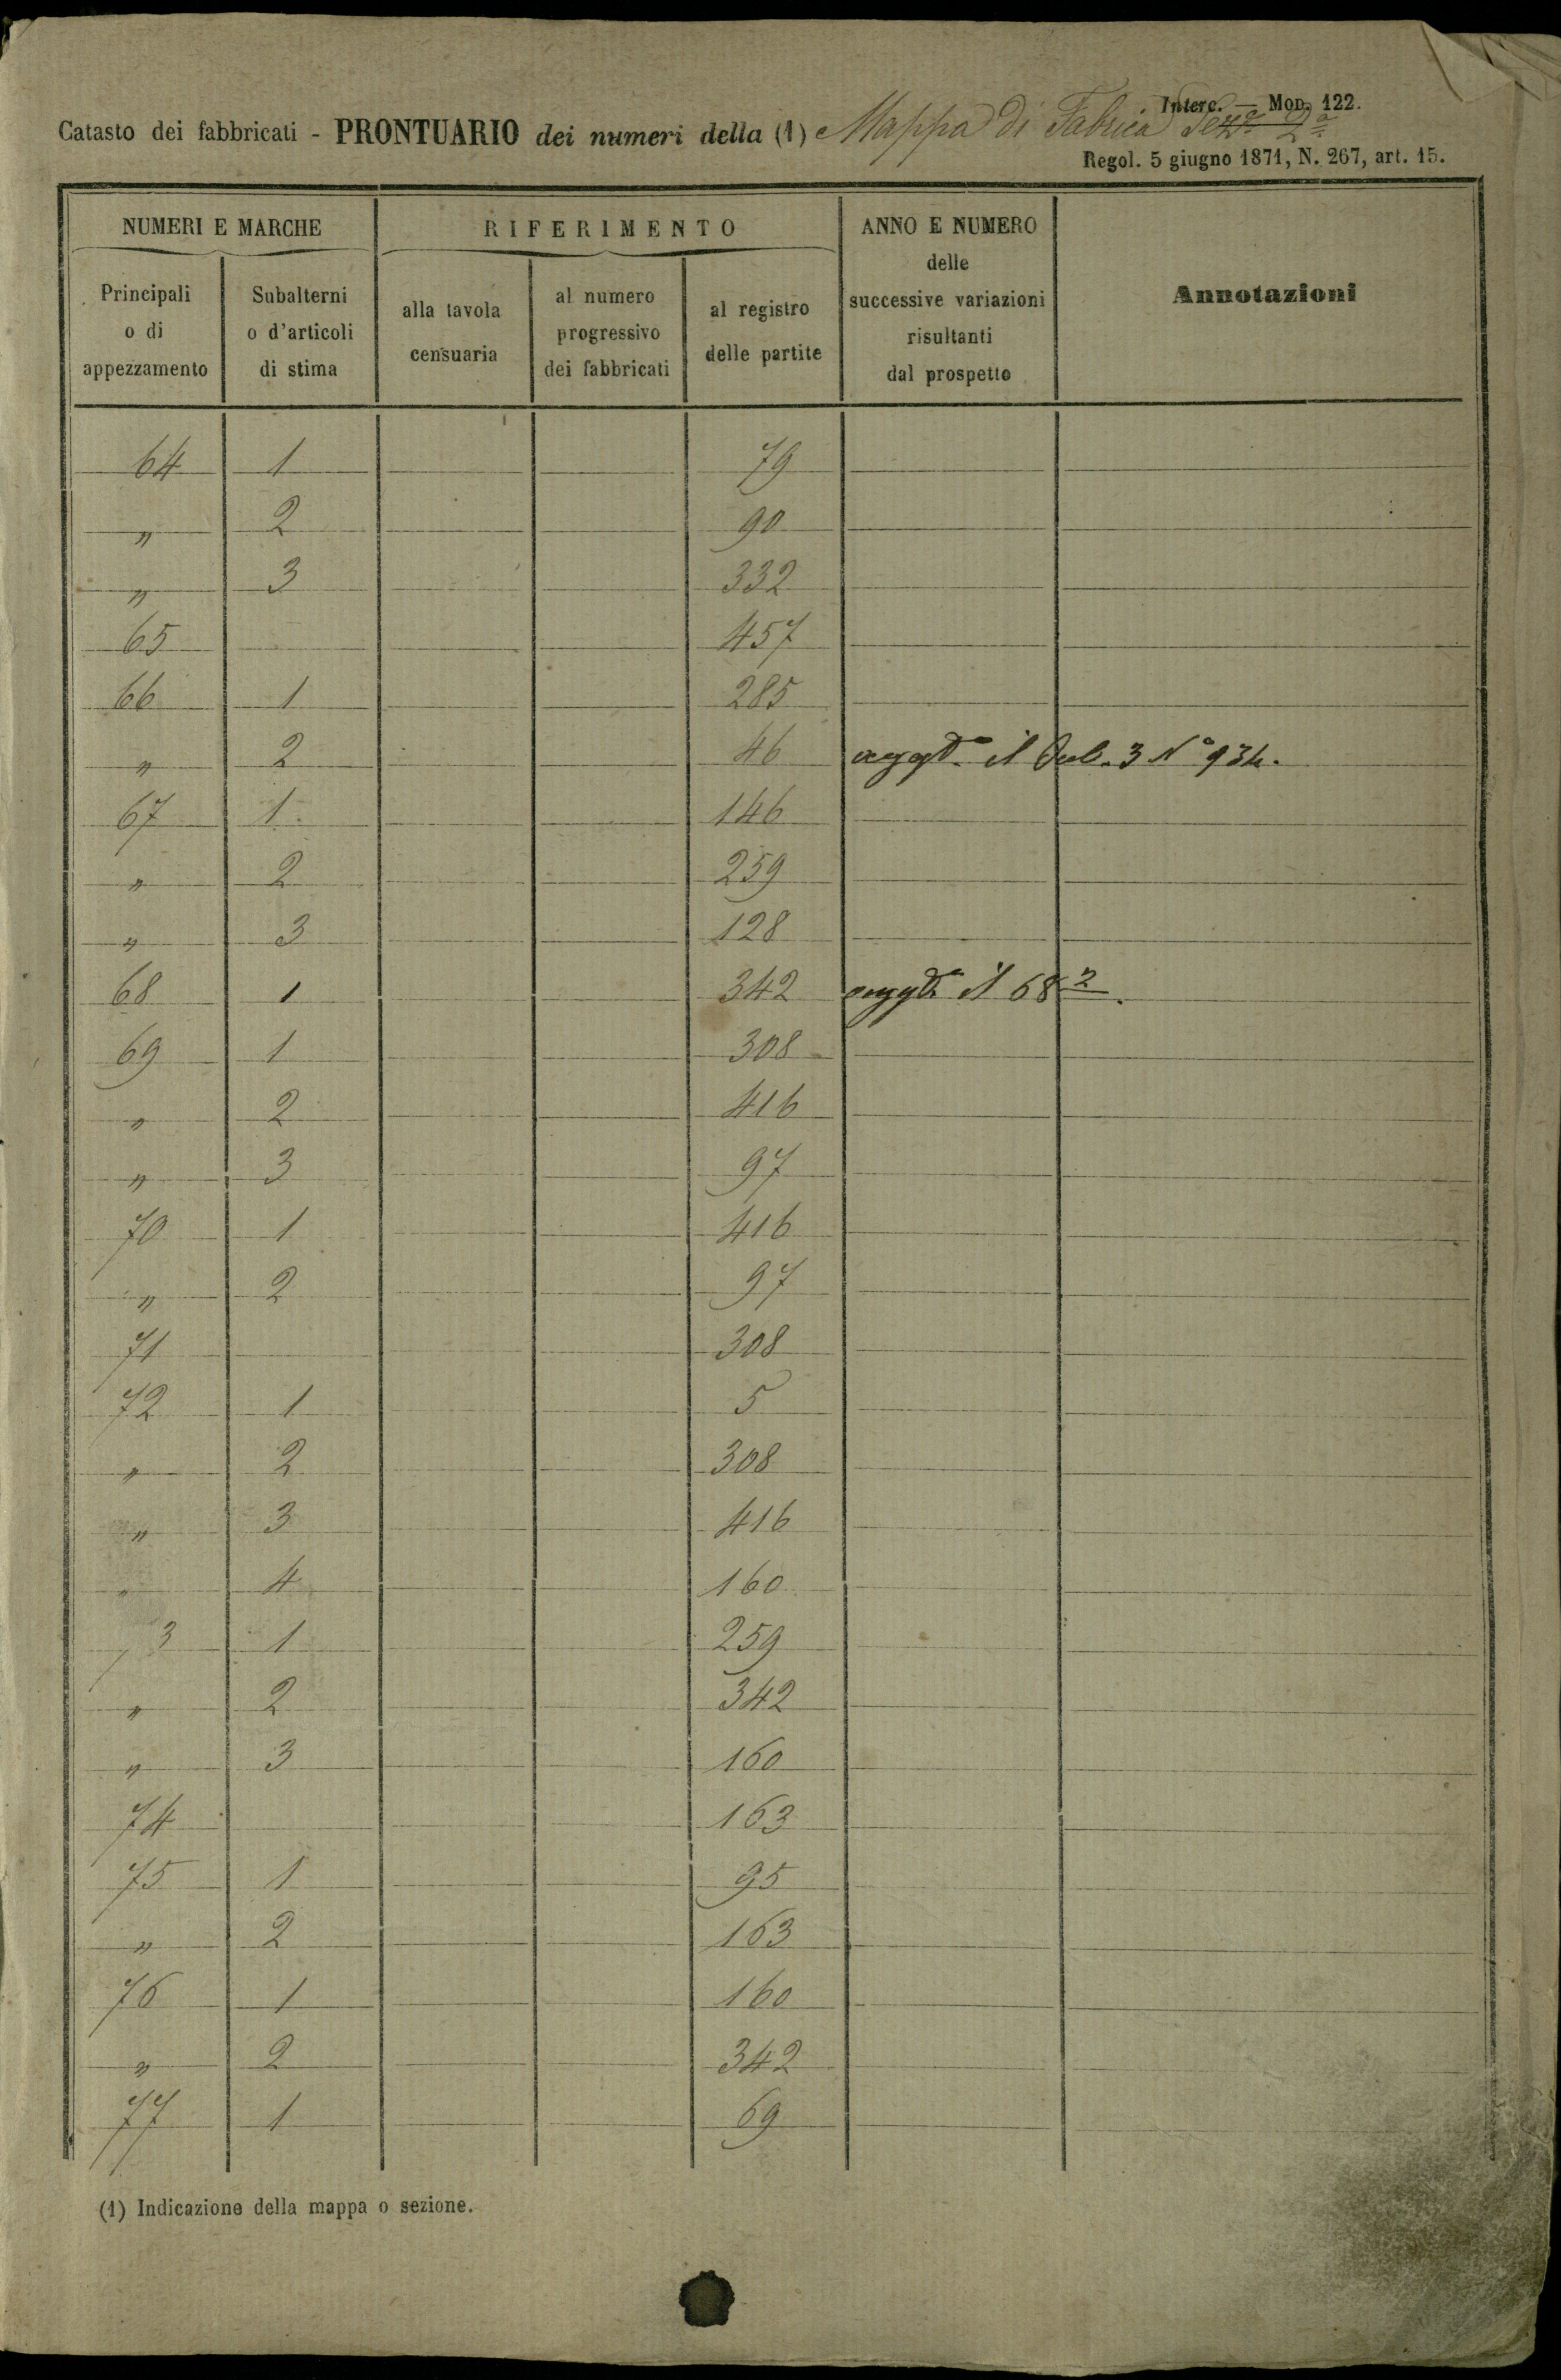 Interc. — Mod. 122.
Catasto dei fabbricati - PRONTUARIO dei numeri della (1) Mappa di Fabrica Sezᵉ 2ª
Regol. 5 giugno 1871, N. 267, art. 15.
NUMERI E MARCHE RIFERIMENTO ANNO E NUMERO delle successive variazioni risultanti dal prospetto Annotazioni
Principali o di appezzamento Subalterni o d'articoli di stima alla tavola censuaria al numero progressivo dei fabbricati al registro delle partite
64 1 79
" 2 90
" 3 332
65 457
66 1 285
" 2 46 aggᵗᵒ il Sub. 3 N° 934.
67 1 146
" 2 259
" 3 128
68 1 342 aggᵗᵒ il 68 2.
69 1 308
" 2 416
" 3 97
70 1 416
" 2 97
71 308
72 1 5
" 2 308
" 3 416
" 4 160
3 1 259
" 2 342
" 3 160
74 163
75 1 95
" 2 163
76 1 160
" 2 342
77 1 69
(1) Indicazione della mappa o sezione.